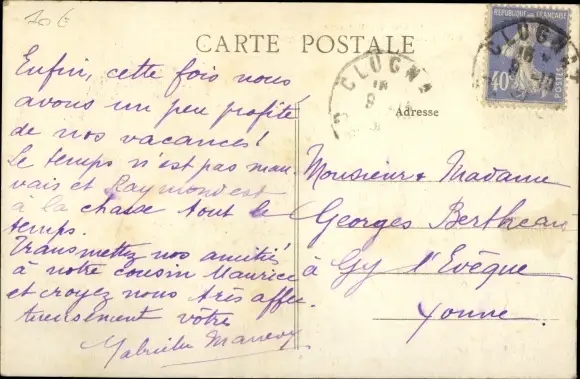 20 €
CARTE POSTALE
REPUBLIQUE FRANÇAISE
40
POSTES
CLUGNAT
18
9
Adresse
Enfin, cette fois nous
avons un peu profité
de nos vacances!
Le temps n'est pas mau
vais et Raymond est
à la chasse tout le
temps.
Transmettez nos amitiés
à notre cousin Maurice
et croyez nous très affec
tueusement vôtre
Monsieur & Madame
Georges Bertheau
à Gy l'Evêque
Yonne.